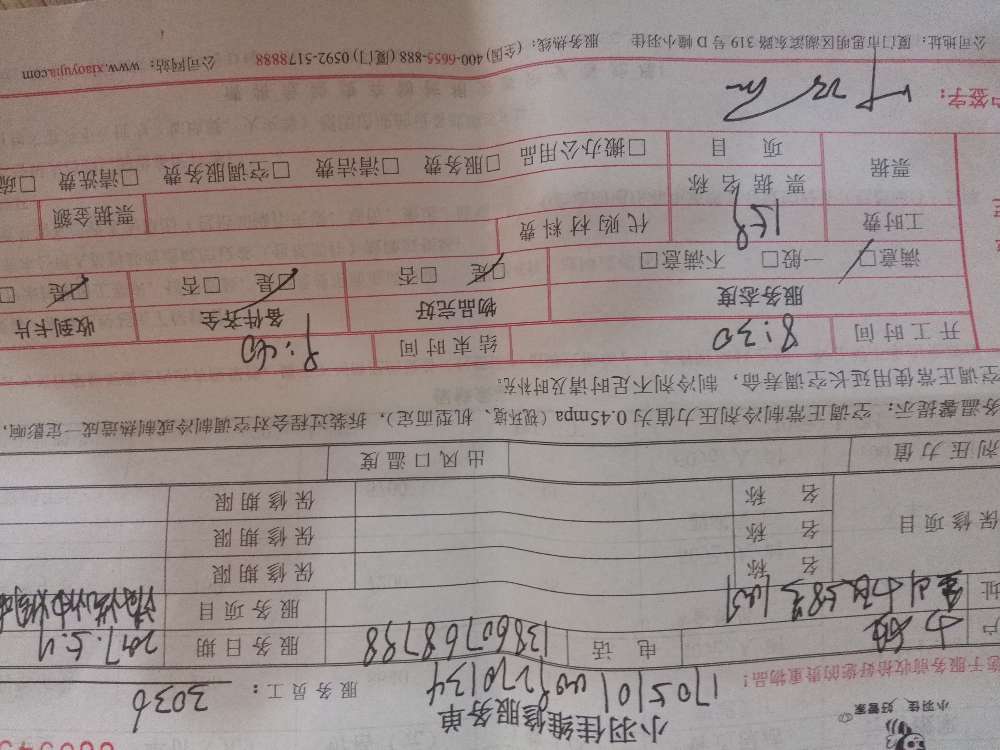 小羽佳 好管家
小羽佳维修服务单
服务员工： 3036
于服务前收拾好您的贵重物品！
户 电话 13860768798 服务日期 2017.5.4
址 服务项目
保修项目 名称 保修期限
名称 保修期限
名称 保修期限
剂压力值 出风口温度
务温馨提示：空调正常制冷剂压力值为 0.45mpa（视环境、机型而定），拆装过程会对空调制冷或制热造成一定影响，
空调正常使用延长空调寿命，制冷剂不足时请及时补充。
开工时间 8:30 结束时间 9:40
服务态度 物品完好 备件齐全 收到卡片
满意□ 一般□ 不满意□ 是□ 否□ 是□ 否□ 是□
工时费 158 代购材料费
票据 票据名称 票据金额
项目 □搬办公用品 □服务费 □清洁费 □空调服务费 □清洗费 □疏
签字：
公司地址：厦门市思明区湖滨东路 319 号 D 幢小羽佳 服务热线：(全国) 400-6655-888 (厦门) 0592-5178888 公司网站：www.xiaoyujia.com